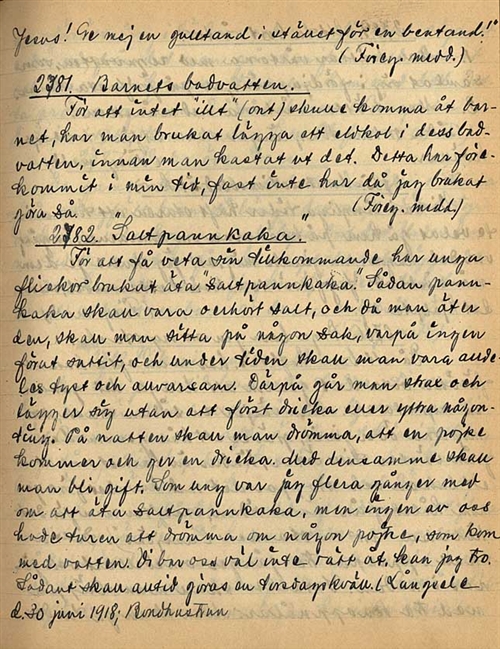 Jesus! Ge mej en gulltand i stället för en bentand!"
(Förey. medd.)
2781. Barnets badvatten.
För att intet "illt" (ont) skulle komma åt bar-
net, har man brukat lägga ett eldkol i dess bad-
vatten, innan man kastat ut det. Detta har före-
kommit i min tid, fast inte har då jag brukat
göra så. (Förey. medd.)
2782. "Saltpannkaka."
För att få veta sin tillkommande har unga
flickor brukat äta "saltpannkaka." Sådan pann-
kaka skall vara oerhört salt, och då man äter
den, skall man sitta på någon sak, varpå ingen
förut suttit, och under tiden skall man vara alde-
les tyst och allvarsam. Därpå går man strax och
lägger sig utan att först dricka eller yttra någon-
ting. På natten skall man drömma, att en pojke
kommer och ger en dricka. Med densamme skall
man bli gift. Som ung var jag flera gånger med
om att äta saltpannkaka, men ingen av oss
hade turen att drömma om någon pojke, som kom
med vatten. Vi bar oss väl inte rätt åt, kan jag tro.
Sådant skall alltid göras en torsdagskväll. (Långsele
d. 30 juni 1918; Bondhustrun